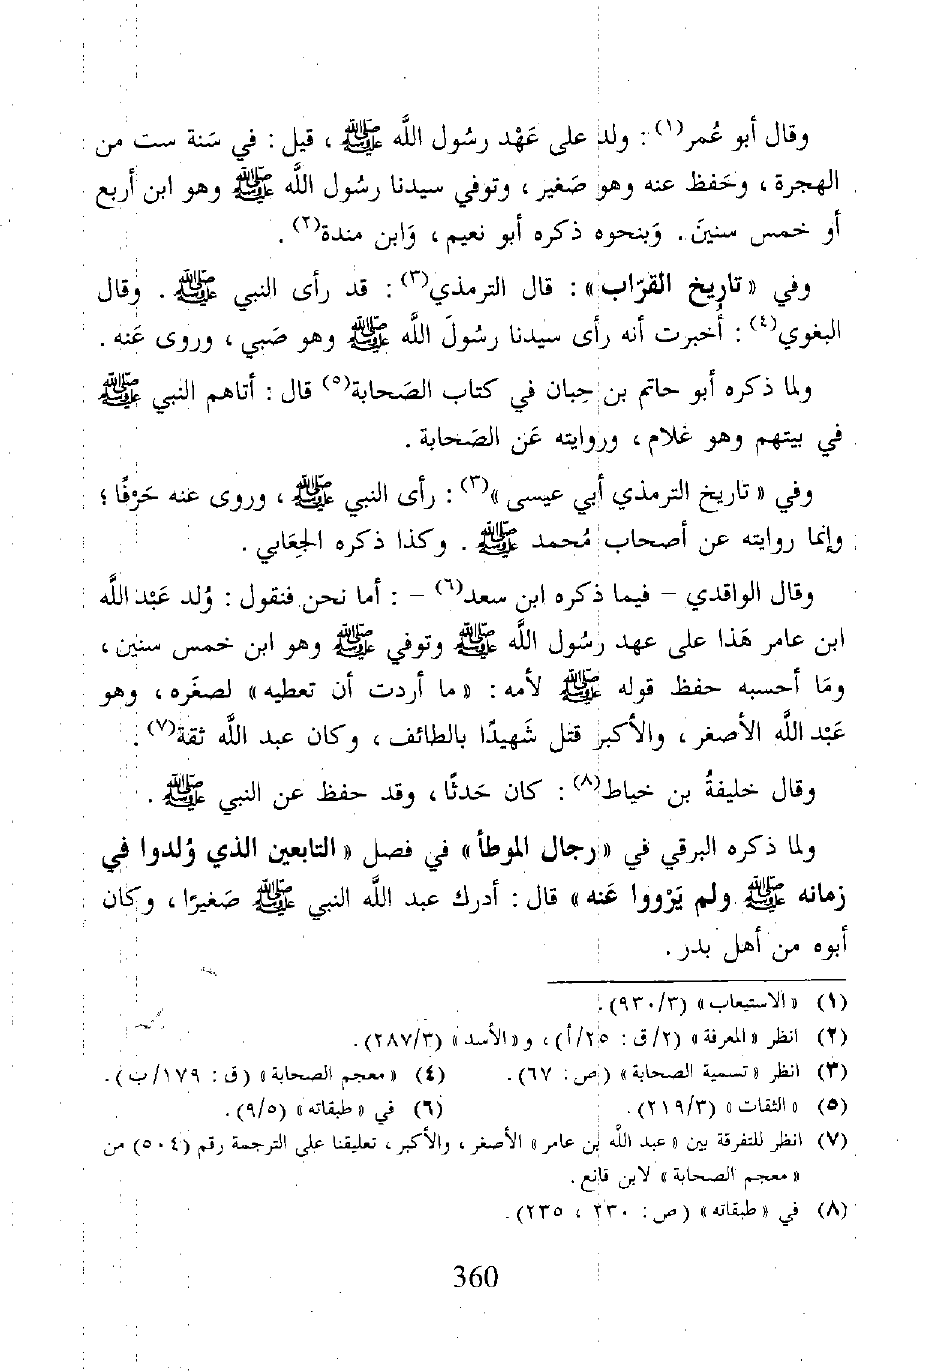 وقال أبو عُمر(١) : ولد على عَهْد رسُول اللَّه ﷺ ، قيل : في سَنة ست من
الهجرة ، وحَفظ عنه وهو صَغير ، وتوفي سيدنا رسُول اللَّه ﷺ وهو ابن أربع
أو خمس سنينَ . وَبنحوه ذكره أبو نعيم ، وَابن مندة(٢) .
وفي « تاريخ القرّاب » : قال الترمذي(٣) : قد رأى النبي ﷺ . وقال
البغوي(٤) : أُخبرت أنه رأى سيدنا رسُولَ اللَّه ﷺ وهو صَبي ، وروى عَنه .
ولما ذكره أبو حاتم بن حِبان في كتاب الصَحابة(٥) قال : أتاهم النبي ﷺ
في بيتهم وهو غلام ، وروايته عَن الصَحابة .
وفي « تاريخ الترمذي أبي عيسى »(٣) : رأى النبي ﷺ ، وروى عنه حَرْفًا ؛
وإنما روايته عن أصحاب مُحمد ﷺ . وكذا ذكره الجِعَابي .
وقال الواقدي – فيما ذكره ابن سعد(٦) – : أما نحن فنقول : وُلد عَبْد اللَّه
ابن عامر هَذا على عهد رسُول اللَّه ﷺ وتوفي ﷺ وهو ابن خمس سنين ،
ومَا أحسبه حفظ قوله ﷺ لأمه : « ما أردت أن تعطيه » لصغَره ، وهو
عَبْد اللَّه الأصغر ، والأكبر قتل شَهيدًا بالطائف ، وكان عبد اللَّه ثقة(٧) .
وقال خليفةُ بن خياط(٨) : كان حَدثًا ، وقد حفظ عن النبي ﷺ .
ولما ذكره البرقي في « رجال الموطأ » في فصل « التابعين الذي وُلدوا في
زمانه ﷺ ولم يَرْووا عَنه » قال : أدرك عبد اللَّه النبي ﷺ صَغيرًا ، وكان
أبوه من أهل بدر .
(١) « الاستيعاب » (٩٣٠/٣) .
(٢) انظر « المعرفة » (٢/ق : ٢٥/أ) ، و « الأسد » (٢٨٧/٣) .
(٣) انظر « تسمية الصحابة » (ص : ٦٧) . (٤) « معجم الصحابة » (ق : ١٧٩/ب) .
(٥) « الثقات » (٢١٩/٣) . (٦) في « طبقاته » (٩/٥) .
(٧) انظر للتفرقة بين « عبد اللَّه بن عامر » الأصغر ، والأكبر ، تعليقنا على الترجمة رقم (٥٠٤) من
« معجم الصحابة » لابن قانع .
(٨) في « طبقاته » (ص : ٢٣٠ ، ٢٣٥) .
360